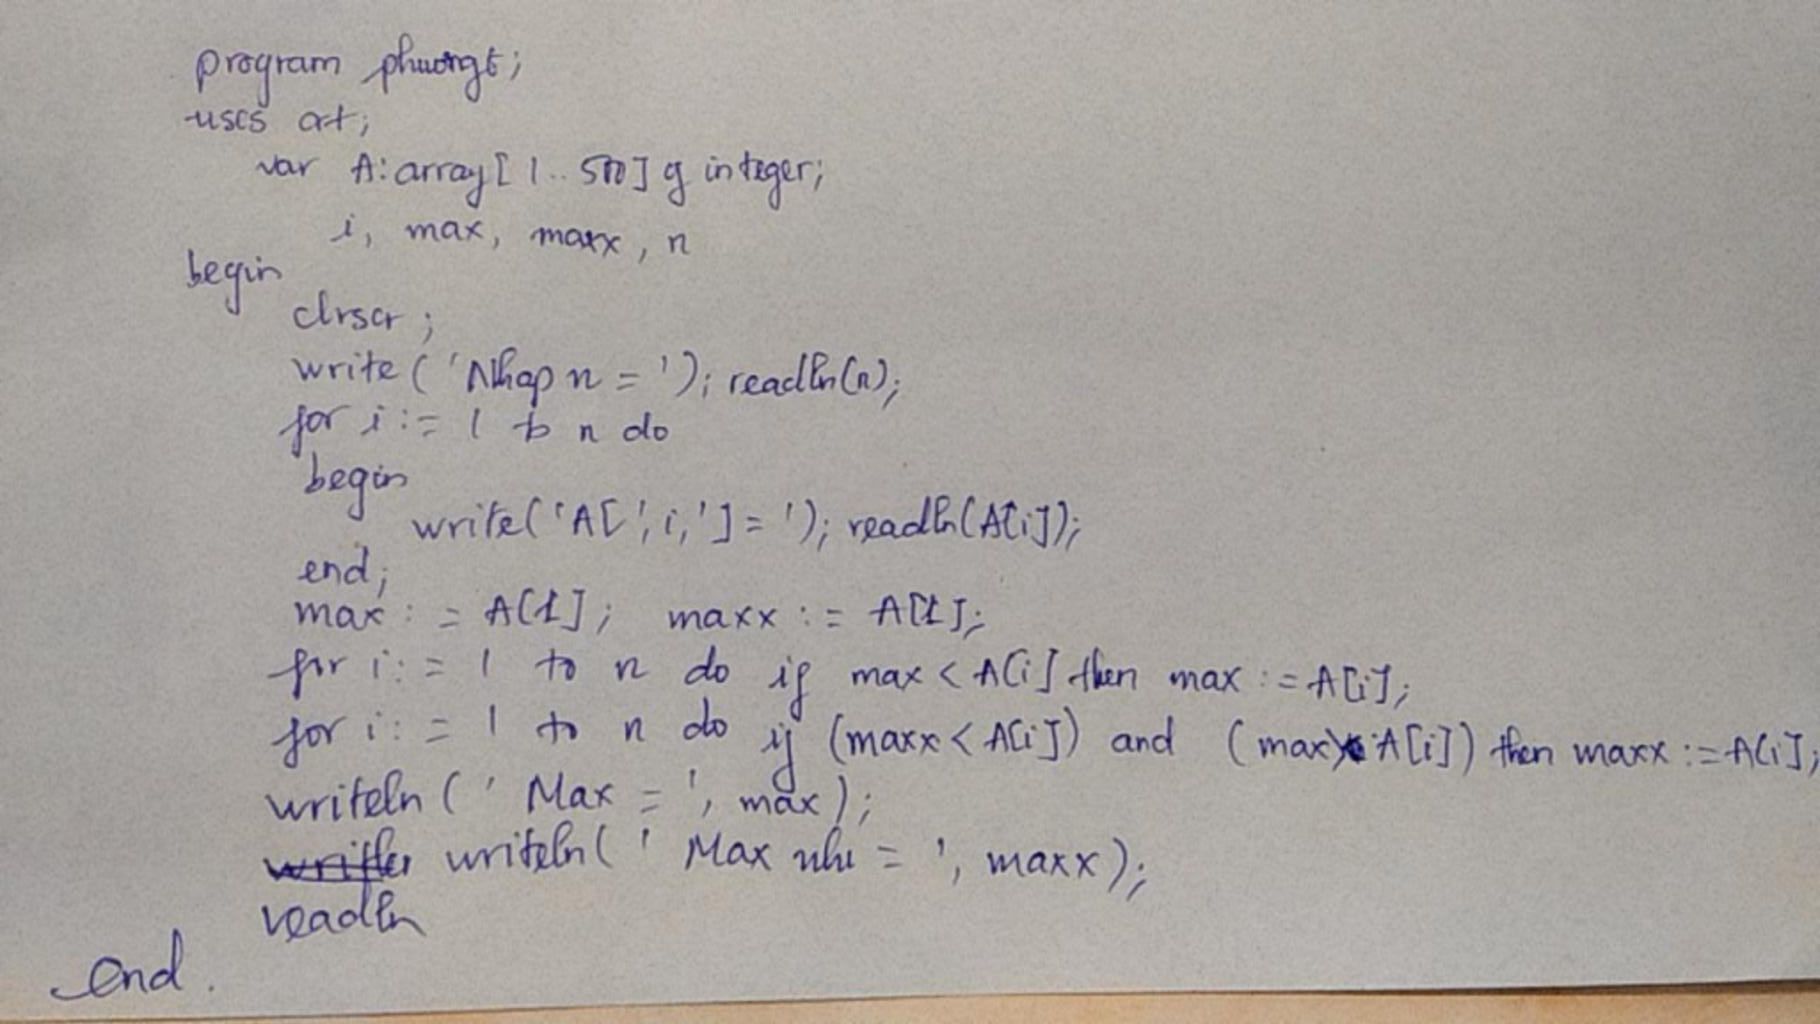 program phuongt;
uses crt;
var A: array[1..500] of integer;
i, max, maxx, n
begin
clrscr;
write('Nhap n = '); readln(n);
for i:= 1 to n do
begin
write('A[',i,']= '); readln(A[i]);
end;
max := A[1]; maxx := A[1];
for i:= 1 to n do if max < A[i] then max := A[i];
for i:= 1 to n do if (maxx < A[i]) and (max A[i]) then maxx := A[i];
writeln(' Max = ', max);
writeln(' Max nhi = ', maxx);
readln
end.